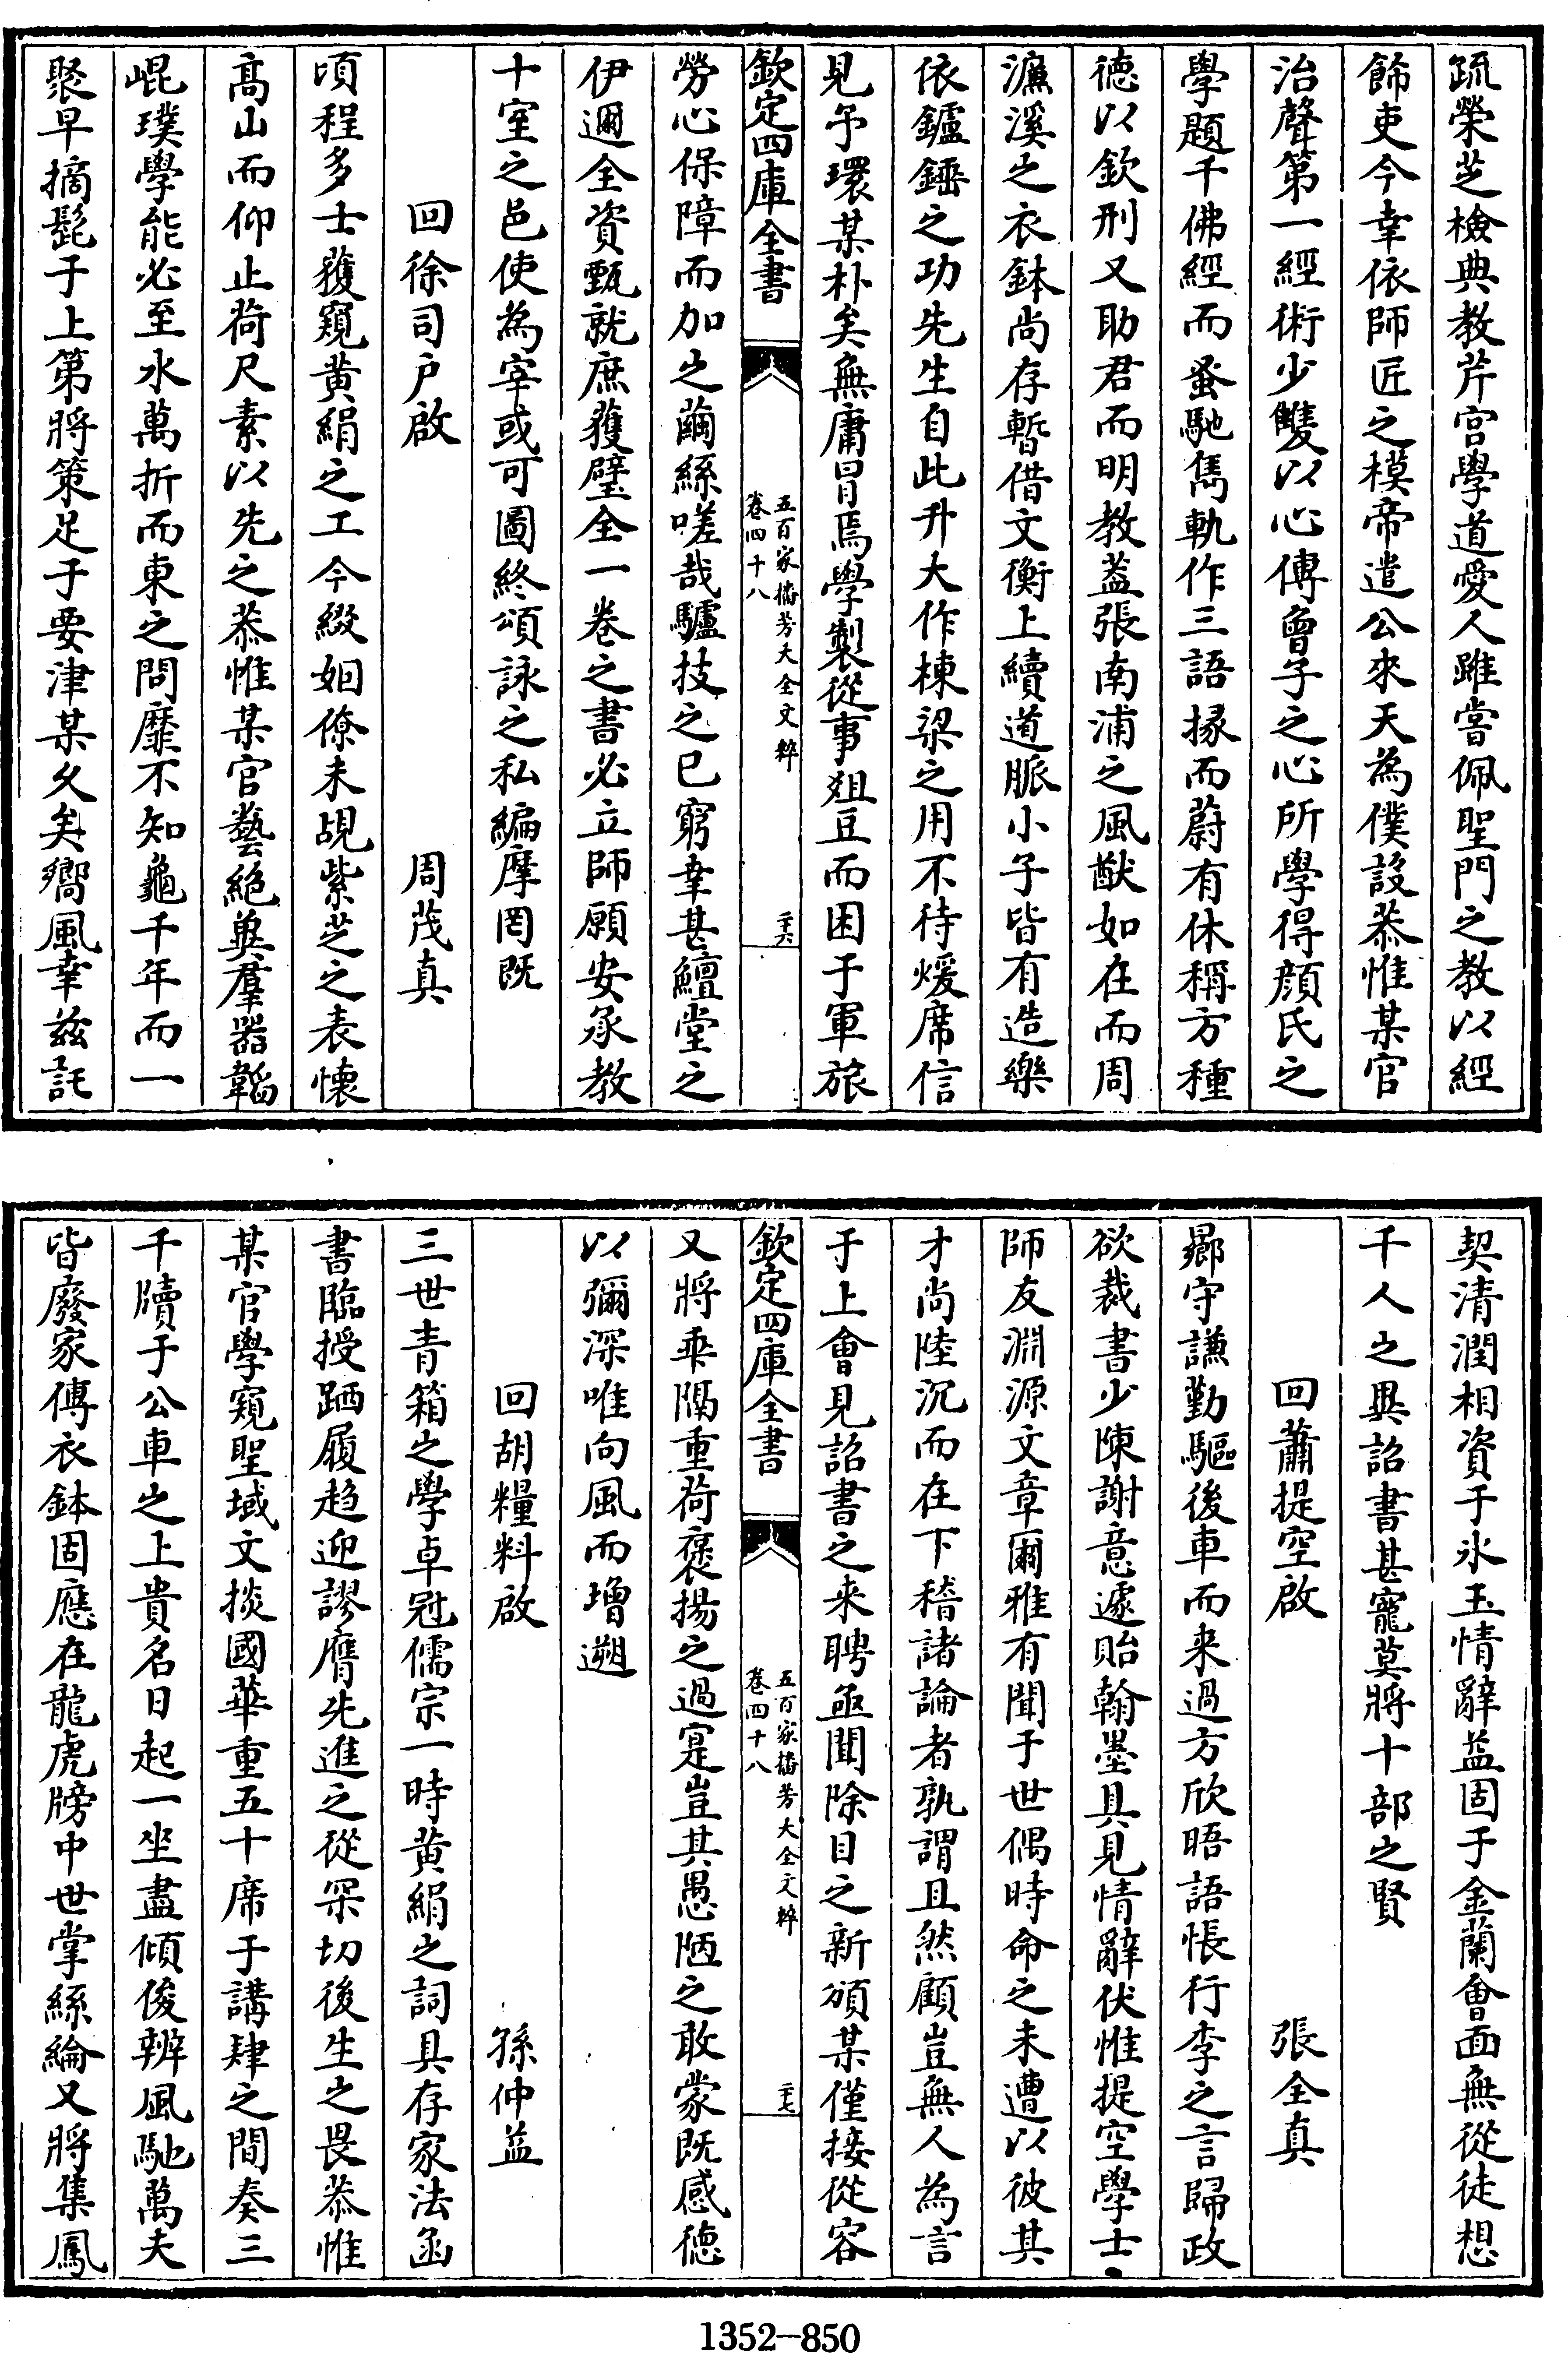 疏榮芝檢典教芹宫學道愛人雖嘗佩聖門之教以經
飾吏今幸依師匠之模帝遣公來天為僕設恭惟某官
治聲第一經術少雙以心傳會子之心所學得顔氏之
學題千佛經而蚤馳雋軌作三語掾而蔚有休稱方種
德以欽刑又助君而明教蓋張南浦之風猷如在而周
濂溪之衣鉢尚存暫借文衡上續道脈小子皆有造樂
依鑪錘之功先生自此升大作棟梁之用不待煖席信
見予環某朴矣無庸冐焉學製從事爼豆而困于軍旅
欽定四庫全書
五百家播芳大全文粹
卷四十八
二十六
勞心保障而加之繭絲嗟哉驢技之已窮幸甚鱣堂之
伊邇全資甄就庶獲璧全一卷之書必立師願安承教
十室之邑使為宰或可圖終頌詠之私編摩罔既
回徐司户啟
周茂真
頃程多士獲窺黄絹之工今綴姻僚未覘紫芝之表懷
高山而仰止荷尺素以先之恭惟某官藝絶兾羣器韜
崐璞學能必至水萬折而東之問靡不知龜千年而一
聚早摘髭于上第將策足于要津某久矣嚮風幸兹託
契清潤相資于氷玉情辭益固于金蘭會面無從徒想
千人之畀詔書甚寵莫將十部之賢
回蕭提空啟
張全真
鄊守謙勤驅後車而来過方欣晤語悵行李之言歸政
欲裁書少陳謝意遽貽翰墨具見情辭伏惟提空學士
師友淵源文章爾雅有聞于世偶時命之未遭以彼其
才尚陸沉而在下稽諸論者孰謂且然顧豈無人為言
于上會見詔書之来聘亟聞除目之新頒某僅接從容
欽定四庫全書
五百家播芳大全文粹
卷四十八
二十七
又將乖隔重荷褒揚之過寔豈其愚陋之敢蒙既感德
以彌深唯向風而增遡
回胡糧料啟
孫仲益
三世青箱之學卓冠儒宗一時黄絹之詞具存家法函
書臨授跴履趋迎謬膺先進之從罙切後生之畏恭惟
某官學窺聖域文掞國華重五十席于講肆之間奏三
千牘于公車之上貴名日起一坐盡傾俊辨風馳萬夫
皆廢家傳衣鉢固應在龍虎牓中世掌絲綸又將集鳳
1352—850